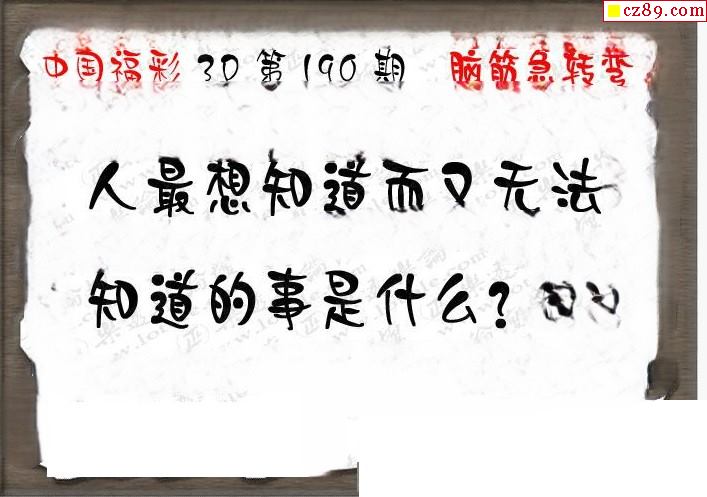 cz89.com
中国福彩 3D 第 190 期 脑筋急转弯
人最想知道而又无法
知道的事是什么?